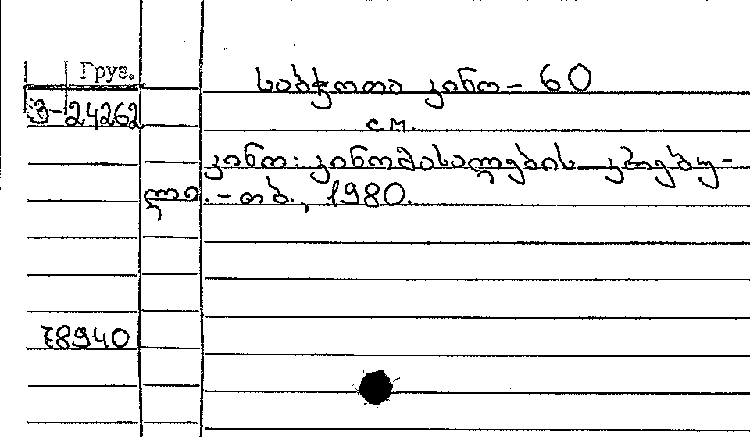 Груз.
საბჭოთა კინო – 60
ვ-24262
см.
კინო: კინომასალების კრებუ-
ლი. – თბ., 1980.
78940